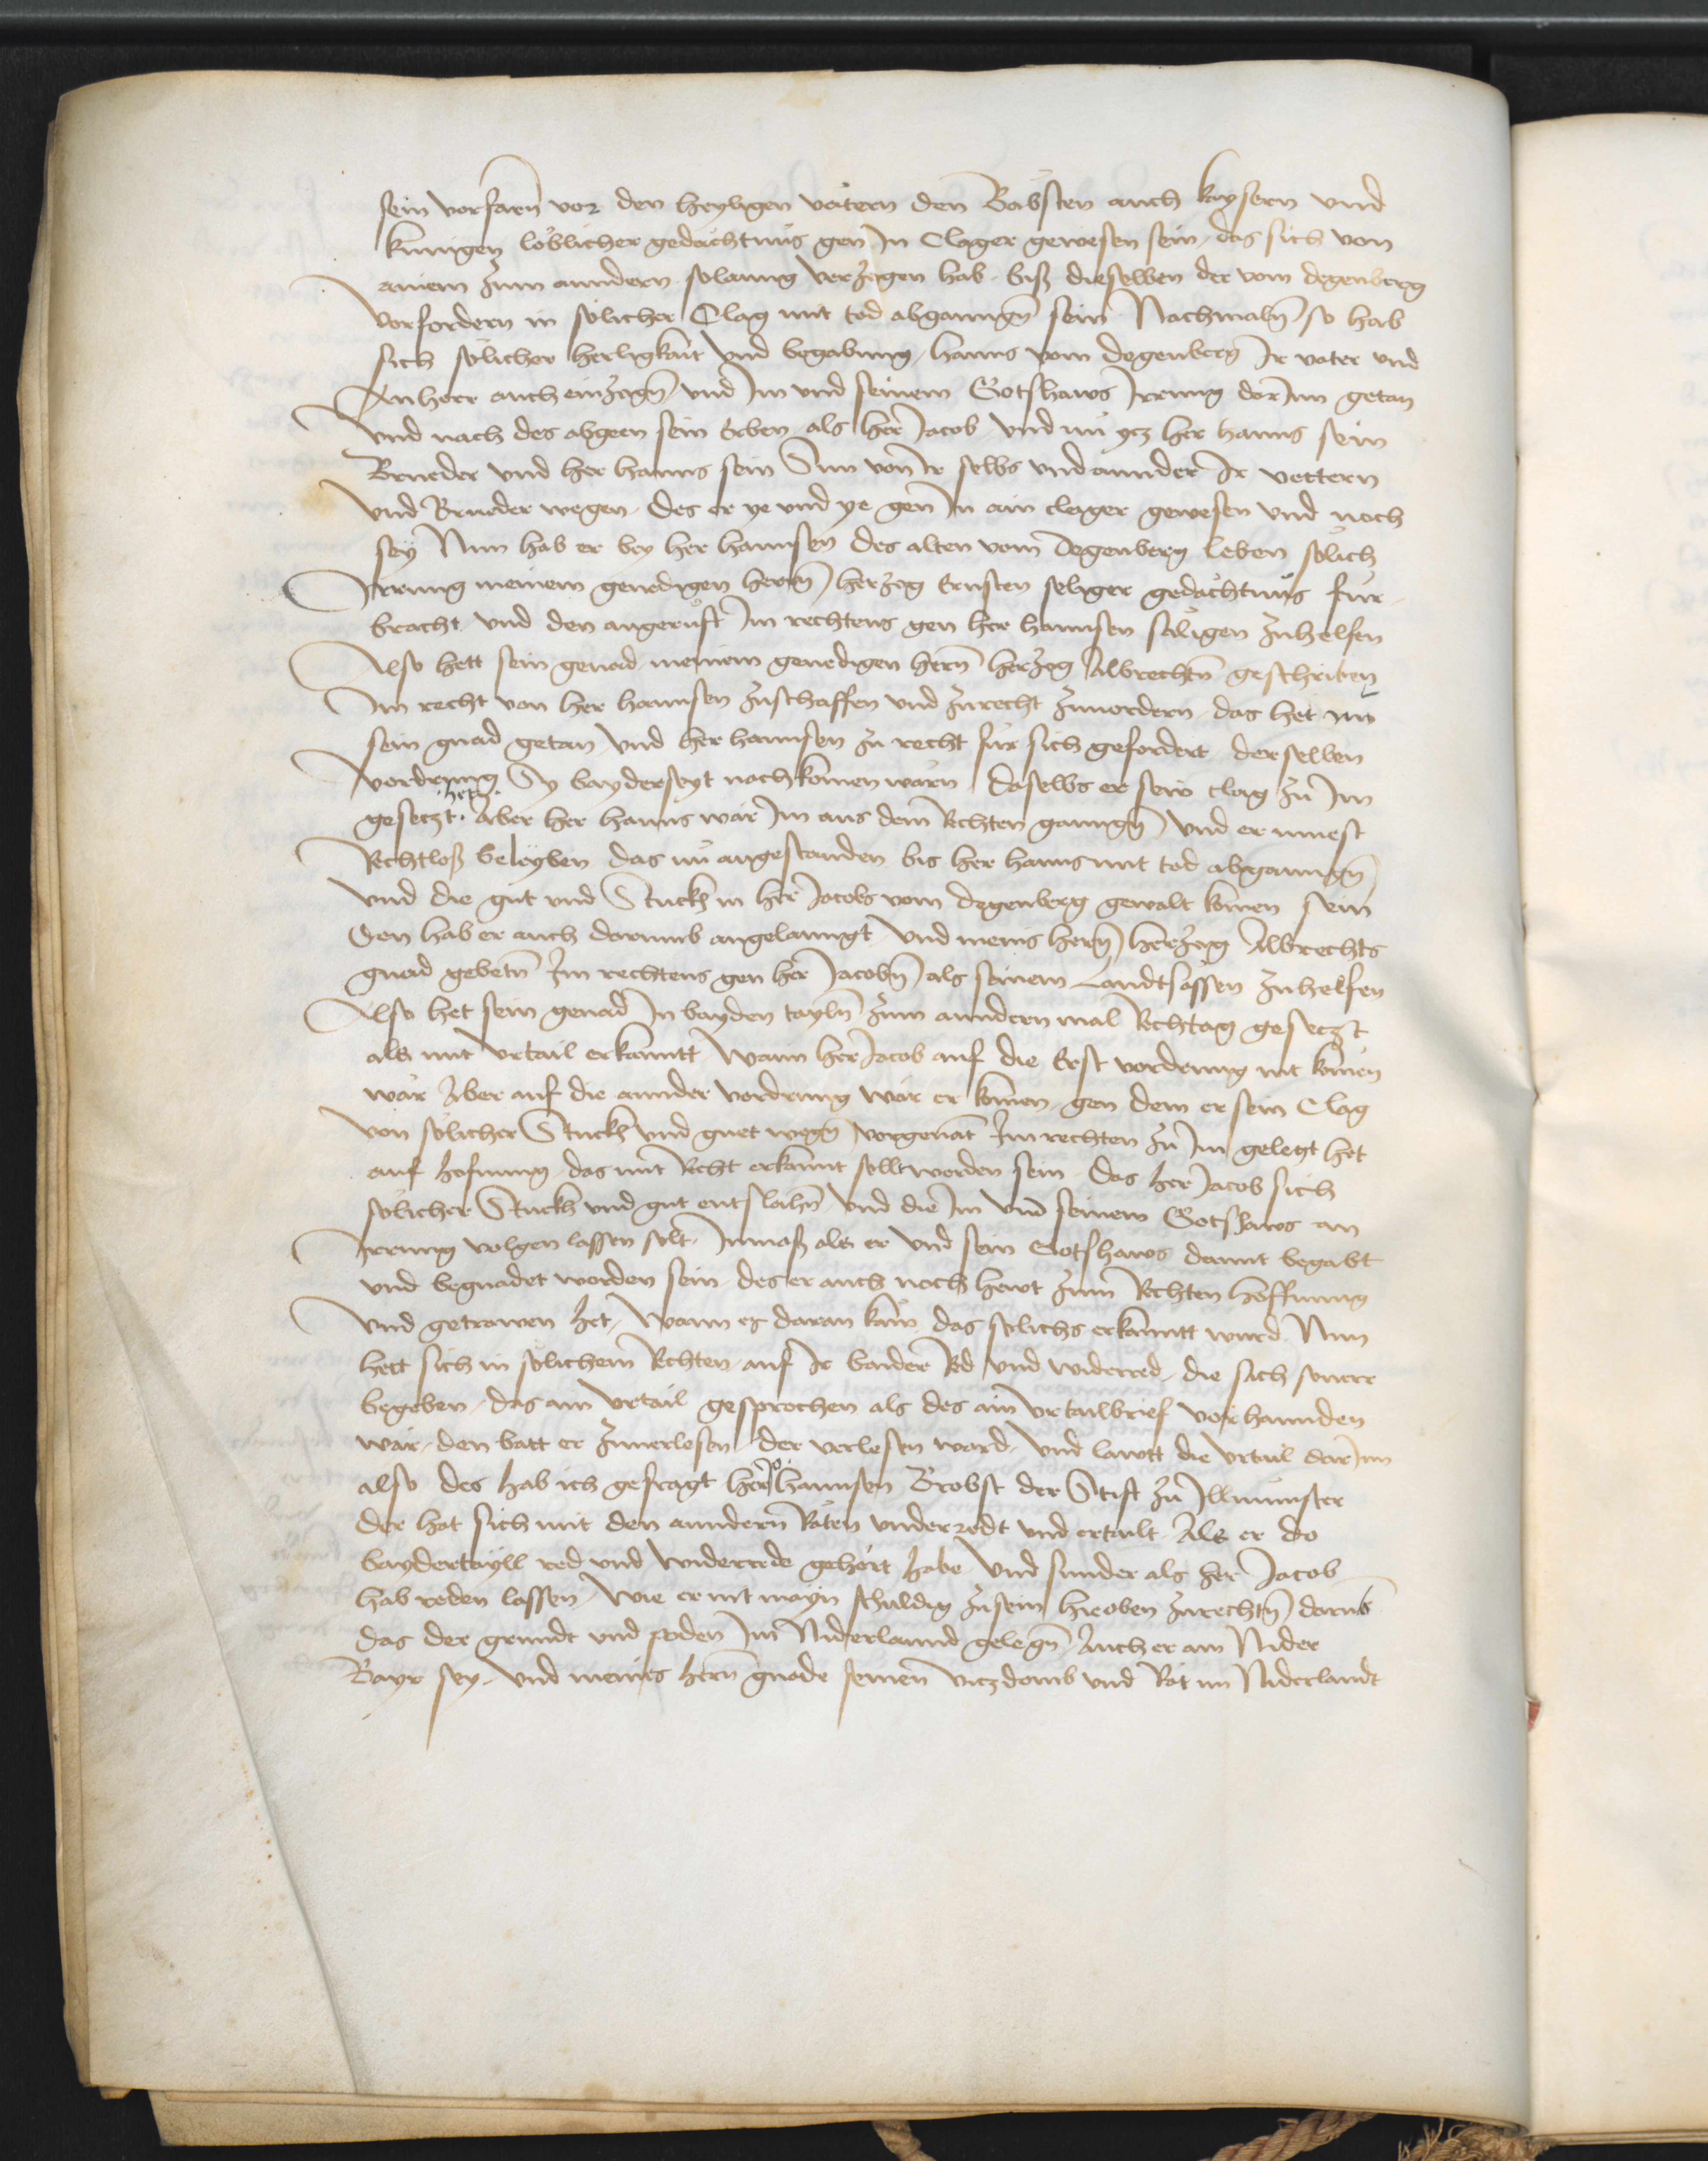 sein vorfarn̄ vor den heyligen vätern den Bäbsten auch kaysern vnd
kunigen löblicher gedächtnüs gen In Clager gewesen sein, das sich von
ainem zum anndern solanng verzogen hab, biß dieselben der vom degenberg
Vorfordern in sölicher Clag mit tod abganngn̄ sein Nachmaln̄ so hab
sich sölicher herligkait vnd begabung, hanns vom degenberg Ir vater vnd
Anherr auch einzogn̄ vnd Im vnd seinem Gotshaws Irrung dorInn getan
Vnd nach des abgeen sein Erben als her Jacob vnd nu ytz her hanns sein
Brueder vnd her hanns sein Sun von Ir selbs vnd annder Ir vettern
vnd Brueder wegen, des er ye vnd ye gen In ain clager gewesen vnd noch
sey Nun hab er bey her hannsen des alten vom Degenberg leben sölich
Irrung meinem genedigen herrn̄ herzog Ernsten seliger gedächtnüs fur
bracht vnd den angerüft Im rechtens gen her hannsen säligen zuhelfen
Also hett sein genad meinem genedigen hern̄ herzog Albrechtn̄ geschriben
Im recht von her hannsen zuschaffen vnd zurecht zuuordern, das het nu
sein gnad getan vnd her hannsen zu recht für sich gefordert derselben
vordrung Sy bayderseyt nachkomen wärn daselbs er sein clag zu Im
gesetzt het. Aber her hanns wär Im aus dem Rechten ganngn̄ vnd er muest
Rechtloß beleyben das nu angestanden bis her hanns mit tod abganngn̄
vnd die gut vnd Stuckh in her Jacobs vom degenberg gewalt komen sein
Den hab er auch darumb angelanngt vnd meins hern̄ herzog Albrechts
gnad gebetn̄ Im rechtens gen her Jacobn̄ als seinem Landtsässen zuhelfen
Also het sein genad In bayden tayln̄ zum anndern mal Rechtag gesetzt
als mit vrtail erkanntt Wann her Jacob auf die Erst vordrung nit komen
wär Aber auf die annder vordrung wär er komen, gen dem er sein Clag
von sölicher Stuckh vnd guet wegn̄ vorgenāt Im rechten zu Im gelegt het
auf hofnung das mit Recht erkannt sollt worden sein, Das her Jacob sich
sölicher Stuckh vnd gut entslahn̄ vnd die Im vnd seinem Gotshaws an
Irrung volgen lassen solt, Inmaß als er vnd sein Gotshaws damit begabt
vnd begnadet worden sein, des er auch noch hewt zum Rechten hoffnung
vnd getrawen het, Wann es daran käm das sölichs erkanntt wurd Nun
hett sich in sölichem Rechten auf Ir baider Red vnd widerred, die sich souerr
begeben, das ain vrtail gesprochen als des ain vrtailbrief vorhannden
wär, den batt er zuuerlesen der verlesen ward, vnd lawtt die vrtail darInn
also des hab ich gefragt hern̄ hannsen Brobst der Stift zu Illmunster
der hat sich mit den anndern Räten vnderredt vnd ertailt Als er do
baydertayll red vnd widerrede gehört habe vnd sunder als her Jacob
hab reden lassen, Wie er nit mayn schuldig zusein hieoben zurechtn̄ darumb
das der grundt vnd poden Im Niderlannd gelegn̄ Auch er ain Nider
Bayr sey, vnd meins hern̄ gnade seinen vitzdomb vnd Rät im Niderlandt